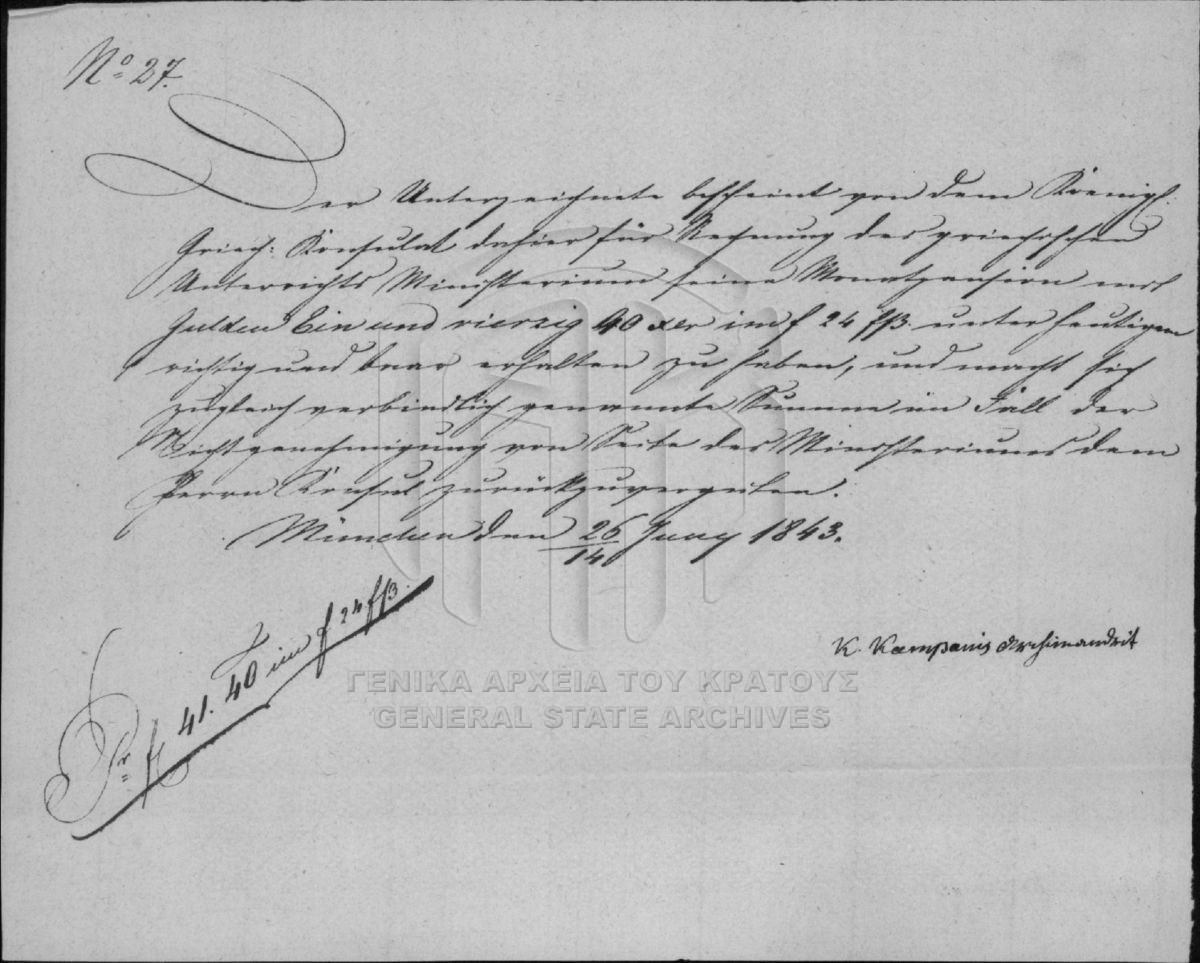 No. 27.
Der Unterzeichnete bescheint von dem Koenigl.
Griech: Konsulat dahier für Rechnung des griechischen
Unterrichts Ministerium seine Monatpension mit
Gulden Ein und vierzig 40 xer im f 24 fß. unter heutigem
richtig und baar erhalten zu haben, und macht sich
zugleich verbindlich genannte Summe im Fall der
Nichtgenehmigung von Seite des Ministeriums dem
Herrn Konsul zurückzuvergüten.
München den 26/14 Juny 1843.
K. Kampanis Archimandrit
Pr f 41. 40 im f 24 fß.
ΓΕΝΙΚΑ ΑΡΧΕΙΑ ΤΟΥ ΚΡΑΤΟΥΣ
GENERAL STATE ARCHIVES